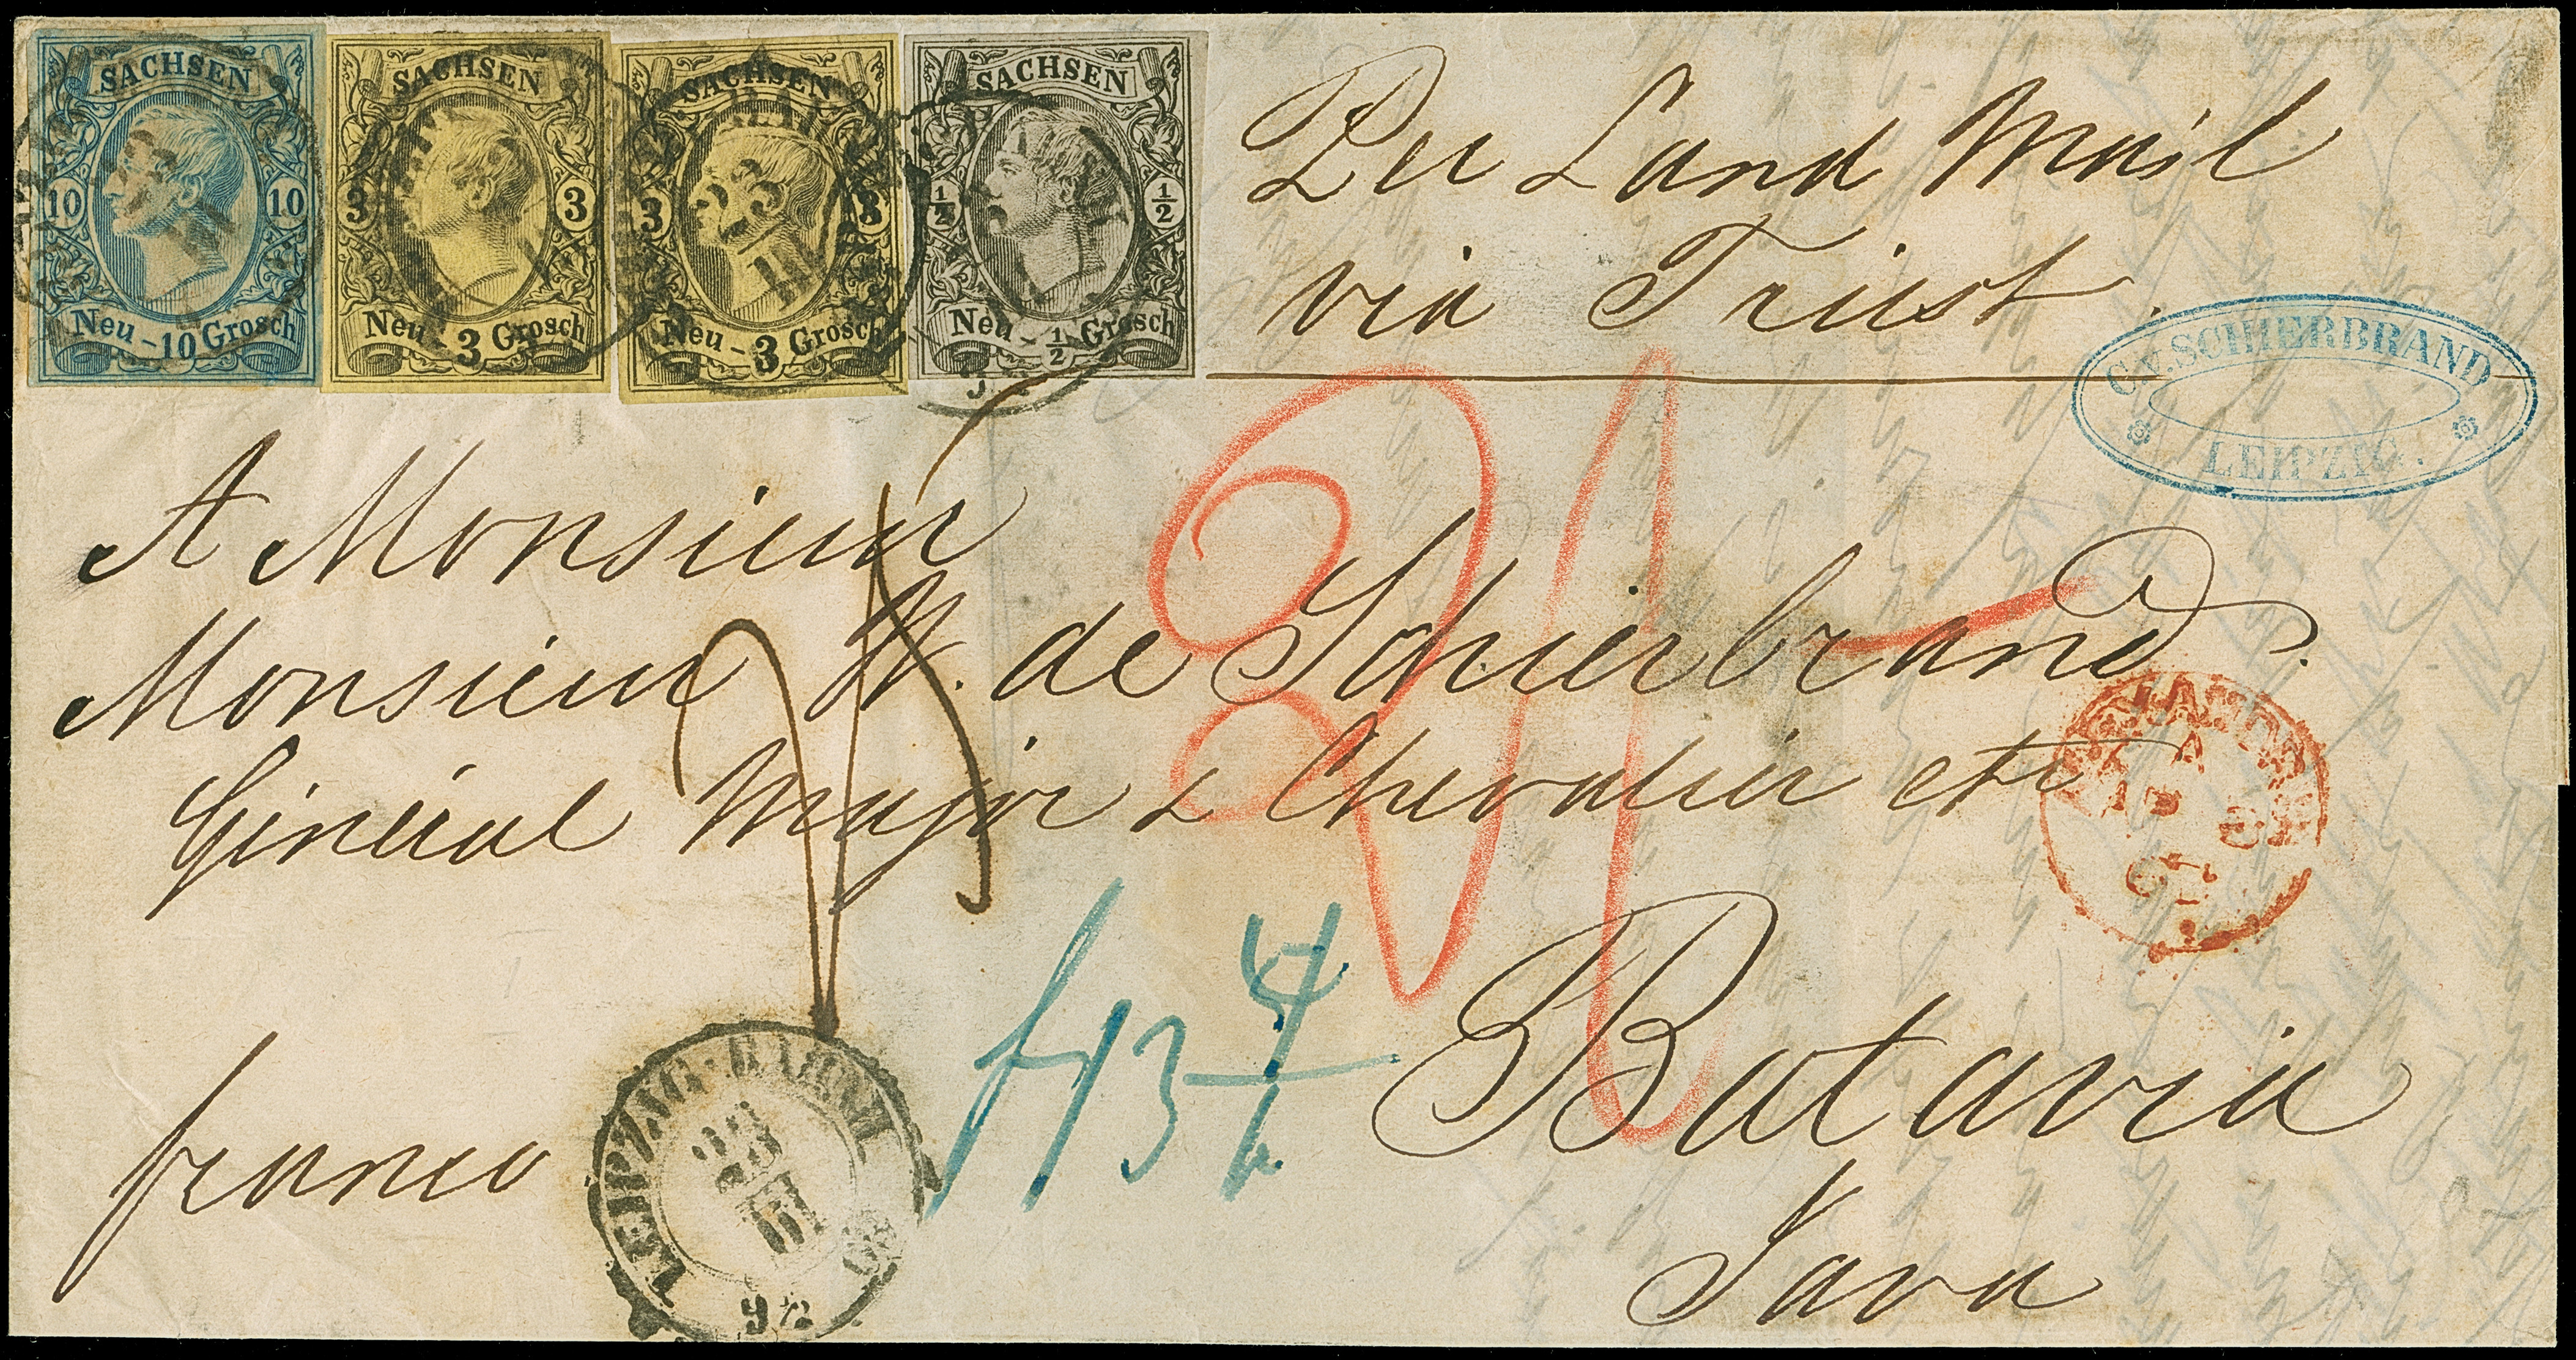 SACHSEN
10 10
Neu-10 Grosch
SACHSEN
3 3
Neu-3 Grosch
SACHSEN
3 3
Neu-3 Grosch
SACHSEN
½ ½
Neu-½ Grosch
23
III
Per Land Mail
via Triest.
C.V. SCHIERBRAND
LEIPZIG.
A Monsieur
Monsieur W. de Schierbrand.
Général Major & Chevalier etc
Batavia
Java
franco
LEIPZIG. BAHNH
23
III